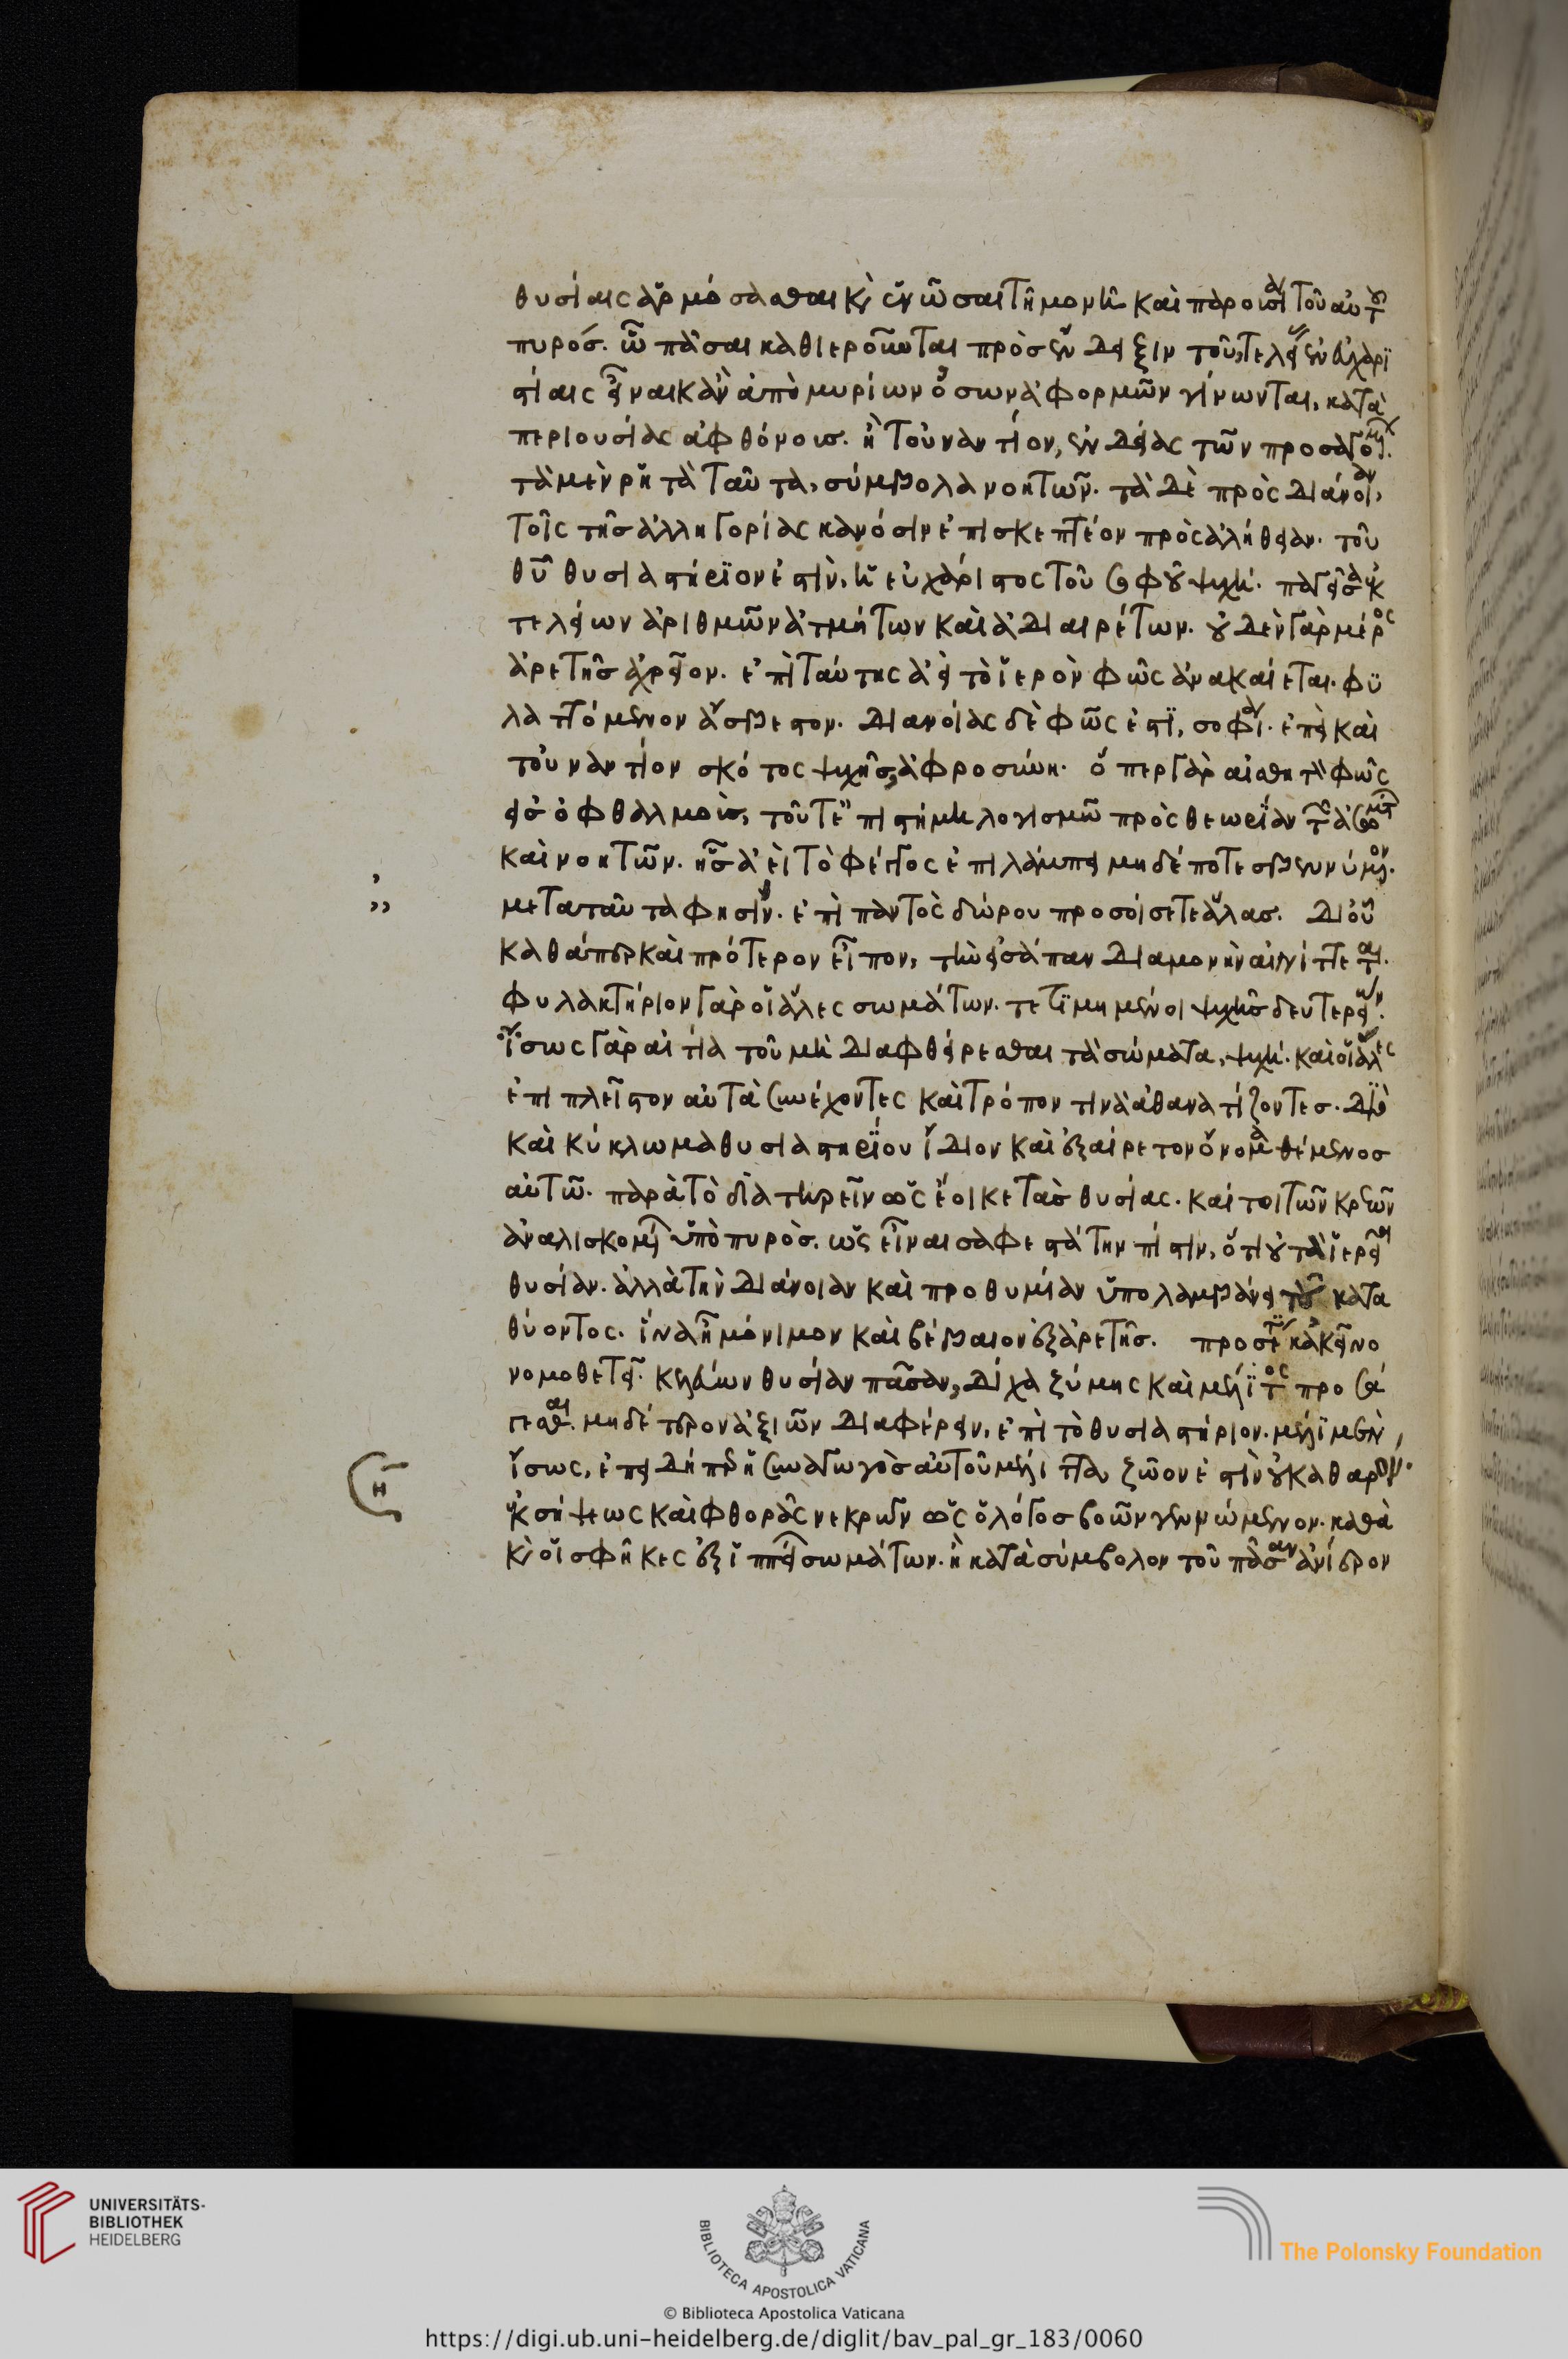 θυσίαις ἁρμόσασθαι κ ἑνῶσαι τῆ μονῆ καὶ παρουσίαν τοῦ αὐτοῦ
πυρός. ᾧ πᾶσαι καθιεροῦνται πρὸς ἔνδειξιν τοῦ, τελείαν εὐχαρι
στίαις εἶναι κἂν ἀπὸ μυρίων ὅσων ἀφορμῶν γίνωνται, κατὰ
περιουσίας ἀφθόνοις. ἢ τοὐναντίον, ἐνδείας τῶν προσαγομένων.
τὰ μὲν ῥητὰ ταῦτα, σύμβολα νοητῶν. τὰ δὲ πρὸς διάνοιαν,
τοῖς τῆς ἀλληγορίας κανόσιν ἐπισκεπτέον πρὸς ἀλήθειαν. τοῦ
θῦ θυσιαστήριόν ἐστιν, ἡ εὐχάριστος τοῦ σοφοῦ ψυχή. παγεῖσα ἐκ
τελείων ἀριθμῶν ἀτμήτων καὶ ἀδιαιρέτων. οὐδὲν γὰρ μέρος
ἀρετῆς ἀχρεῖον. ἐπὶ ταύτης ἀεὶ τὸ ἱερὸν φῶς ἀνακαίεται. φυ
λαττόμενον ἄσβεστον. διανοίας δὲ φῶς ἐστι, σοφία. ἐπεὶ καὶ
τοὐναντίον σκότος ψυχῆς, ἀφροσύνη. ὅπερ γὰρ αἰσθητὸν φῶς
εἰς ὀφθαλμοὺς, τοῦτ' ἐπιστήμη λογισμῶ πρὸς θεωρίαν τῶν ἀσωμάτων
καὶ νοητῶν. ἧς ἀεὶ τὸ φέγγος ἐπιλάμπει μηδέποτε σβεννύμενον.
μετὰ ταῦτα φησὶν. ἐπὶ παντὸς δώρου προσοίσετε ἅλας. δι' οὗ
καθάπερ καὶ πρότερον εἶπον, τὴν εἰς ἅπαν διαμονὴν αἰνίττεται.
φυλακτήριον γὰρ οἱ ἅλες σωμάτων. τετιμημένοι ψυχῆς δευτερείων.
ἴσως γὰρ αἰτία τοῦ μὴ διαφθείρεσθαι τὰ σώματα, ψυχή. καὶ οἱ ἅλες
ἐπιπλεῖστον αὐτὰ συνέχοντες καὶ τρόπον τινὰ ἀθανατίζοντες. διὸ
καὶ κύκλωμα θυσιαστηρίου ἴδιον καὶ ἐξαίρετον ὄνομα θέμενος
αὐτῶ. παρὰ τὸ διατηρεῖν ὡς ἔοικε τὰς θυσίας. καί τοι τῶν κρεῶν
ἀναλισκομένων ὑπὸ πυρὸς. ὡς εἶναι σαφεστάτην πίστιν, ὅτι οὐ τὰ ἱερεῖα
θυσίαν. ἀλλὰ τὴν διάνοιαν καὶ προθυμίαν ὑπολαμβάνει τοῦ κατα
θύοντος. ἵνα ἦ μόνιμον καὶ βέβαιον ἐξ ἀρετῆς. προσέτι κἀκεῖνο
νομοθετεῖ. κελεύων θυσίαν πᾶσαν, δίχα ζύμης καὶ μέλιτος προσά
γεσθαι. μηδέτερον ἀξιῶν διαφέρειν, ἐπὶ τὸ θυσιαστήριον. μέλι μὲν
ἴσως, ἐπειδήπερ ἡ συναγωγὸς αὐτοῦ μέλιττα, ζῶον ἐστὶν οὐ καθαρόν.
ἐκ σήψεως καὶ φθορᾶς νεκρῶν ὡς ὁ λόγος βοῶν γεννώμενον. καθὰ
κ οἱ σφῆκες ἐξ ἱππείων σωμάτων. ἢ κατὰ σύμβολον τοῦ πᾶσαν ἀνίερον
η
UNIVERSITÄTS-
BIBLIOTHEK
HEIDELBERG
BIBLIOTECA APOSTOLICA VATICANA
© Biblioteca Apostolica Vaticana
The Polonsky Foundation
https://digi.ub.uni-heidelberg.de/diglit/bav_pal_gr_183/0060